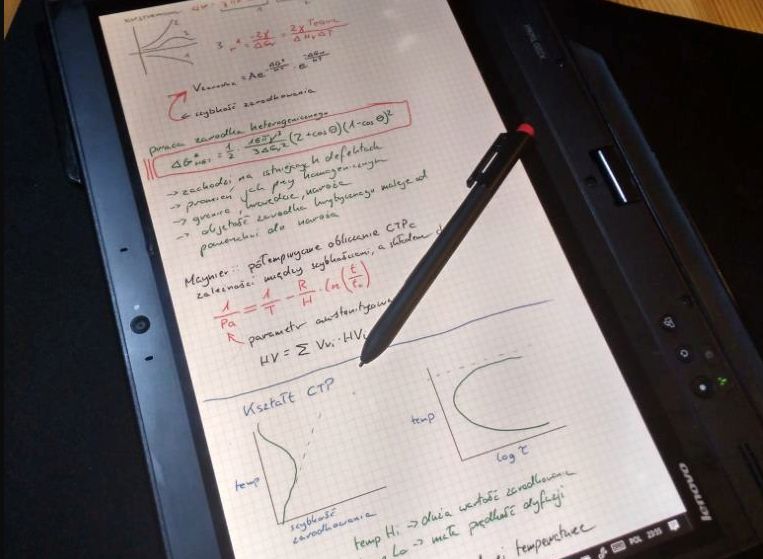 3 r* = -2γ/ΔGv = 2γ Teqv/ΔHv ΔT
szybkość zarodkowania
praca zarodka heterogenicznego
ΔG*HET = 1/2 · 16πγ³/3ΔGv² (2+cosΘ)(1-cosΘ)²
→ zachodzi na istniejących defektach
→ promień, jak przy homogenicznym
→ granice, krawędzie, naroża
→ objętość zarodka krytycznego maleje od
powierzchni do naroża
Maynier: półempiryczne obliczanie CTPc
zależności między szybkościami, a składem
1/Pa = 1/T - R/H · ln(t/t₀)
parametr austenityzowa
HV = Σ Vvi · HVi
Kształt CTP
temp
szybkość
zarodkowania
temp
log τ
temp Hi → duża wartość zarodkowania
Lo → mała prędkość dyfuzji
temperaturze
lenovo
POL 23:35